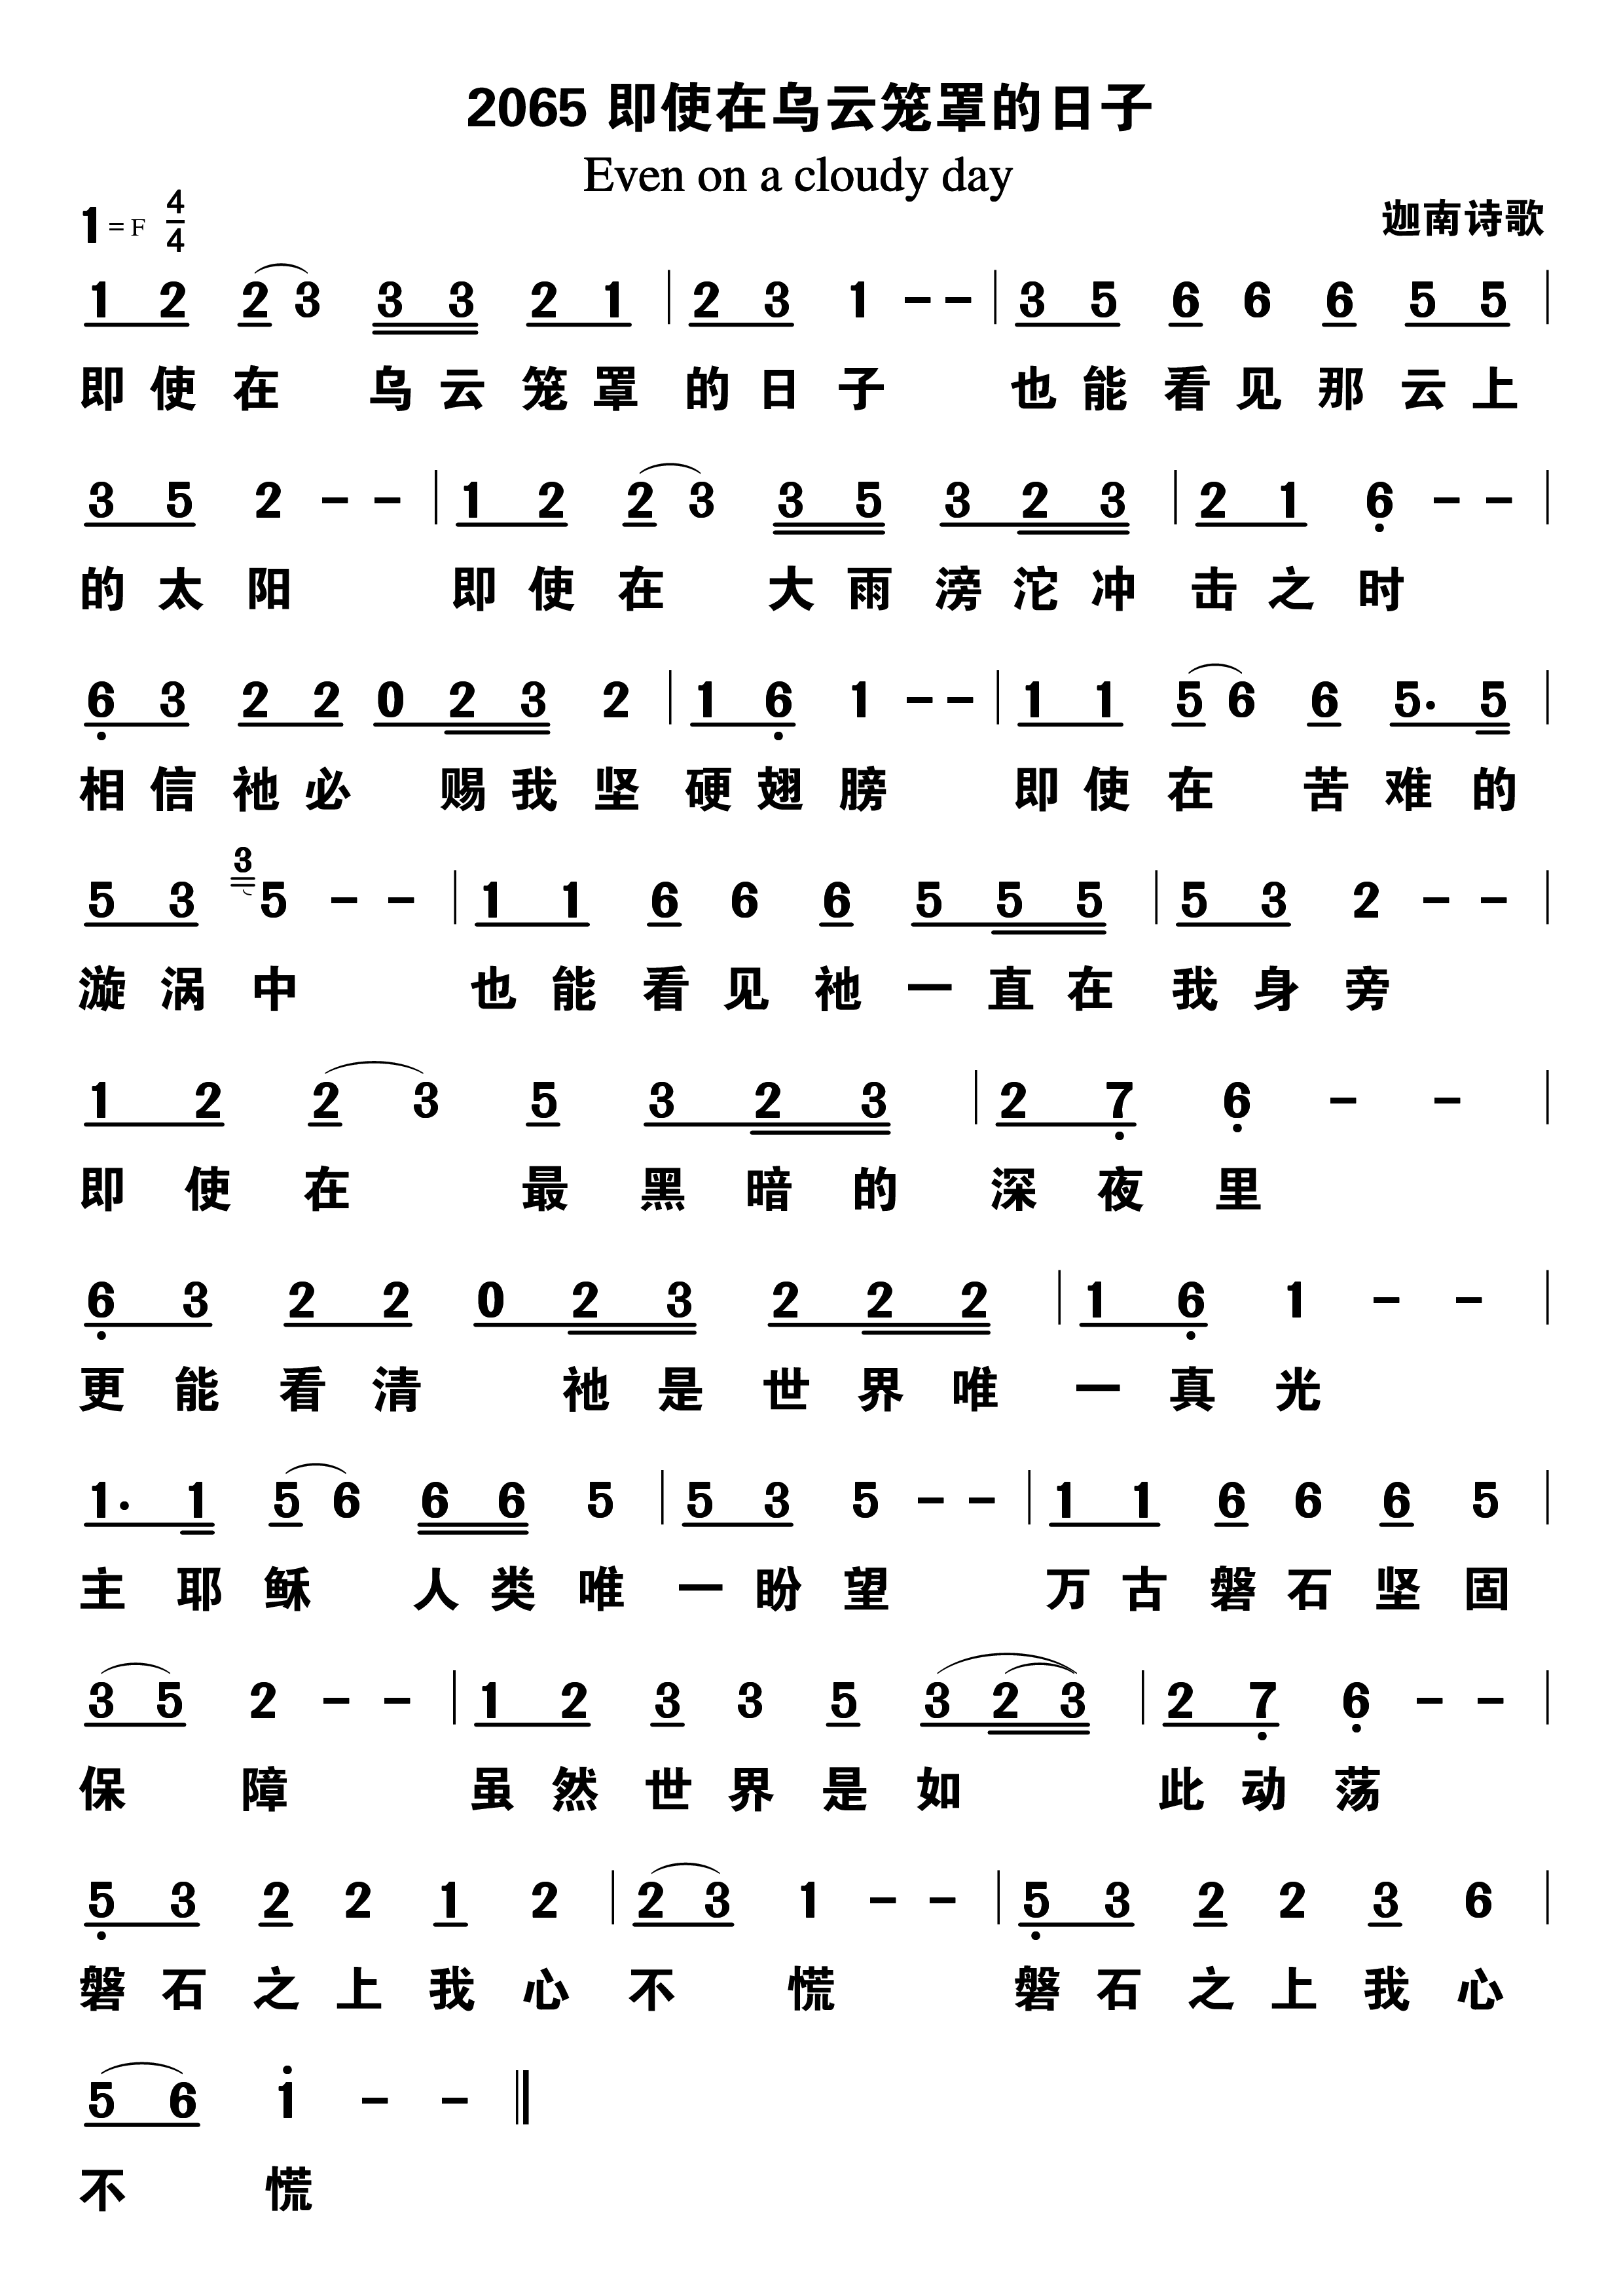 2065 即使在乌云笼罩的日子
Even on a cloudy day
1=F 4/4 迦南诗歌
1 2 2 3 3 3 2 1 | 2 3 1 - - | 3 5 6 6 6 5 5 |
即使在 乌云笼罩 的日子 也能看见那云上
3 5 2 - - | 1 2 2 3 3 5 3 2 3 | 2 1 6 - - |
的太阳 即使在 大雨滂沱冲 击之时
6 3 2 2 0 2 3 2 | 1 6 1 - - | 1 1 5 6 6 5. 5 |
相信祂必 赐我坚 硬翅膀 即使在 苦难的
5 3 3 5 - - | 1 1 6 6 6 5 5 5 | 5 3 2 - - |
漩涡中 也能看见祂一直在 我身旁
1 2 2 3 5 3 2 3 | 2 7 6 - - |
即使在 最黑暗的 深夜里
6 3 2 2 0 2 3 2 2 2 | 1 6 1 - - |
更能看清 祂是世界唯 一真光
1. 1 5 6 6 6 5 | 5 3 5 - - | 1 1 6 6 6 5 |
主耶稣 人类唯 一盼望 万古磐石坚固
3 5 2 - - | 1 2 3 3 5 3 2 3 | 2 7 6 - - |
保障 虽然世界是如 此动荡
5 3 2 2 1 2 | 2 3 1 - - | 5 3 2 2 3 6 |
磐石之上我心 不慌 磐石之上我心
5 6 1 - - ‖
不慌